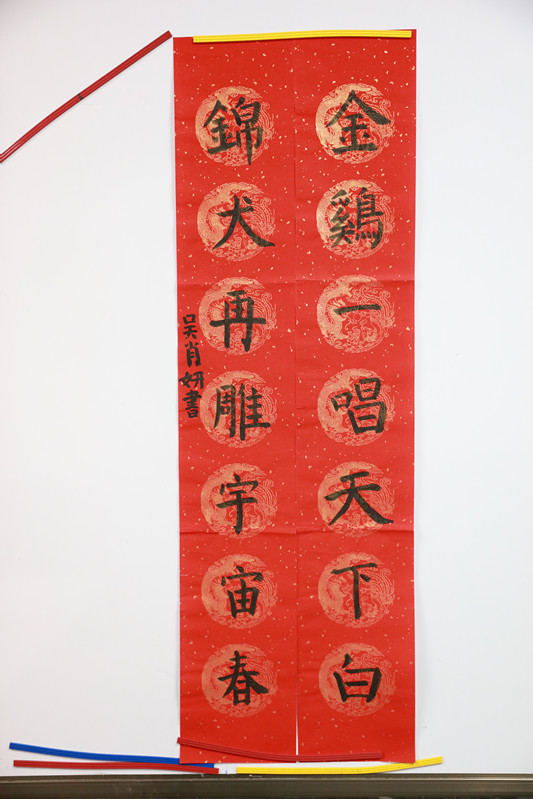 金鷄一唱天下白
錦犬再雕宇宙春
吴肖妍書